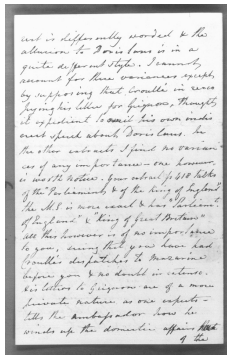 is differently worded & the
allusion to Dorislaus is in a
quite different style. I cannot
account for these variances except
by supposing that Croullé in
his letter for Grignon, thought
it expedient to omit his own
speech about Dorislaus. In
the other extracts I find no varian-
ces of any importance – one however,
is worth notice. Your extract p. 410 talks
of the "Parliaments" & of the King of England"
The M.S. is more exact & has "Parliamt.
of England" & "King of Great Britain"
All this however is of no importance
to you, seeing that you have had
Croullé's despatches to Mazarine
before you & no doubt in extenso.
His letters to Grignon are of a more
private nature as one expects –
tells the ambassador how he
winds up the domestic affairs
of the